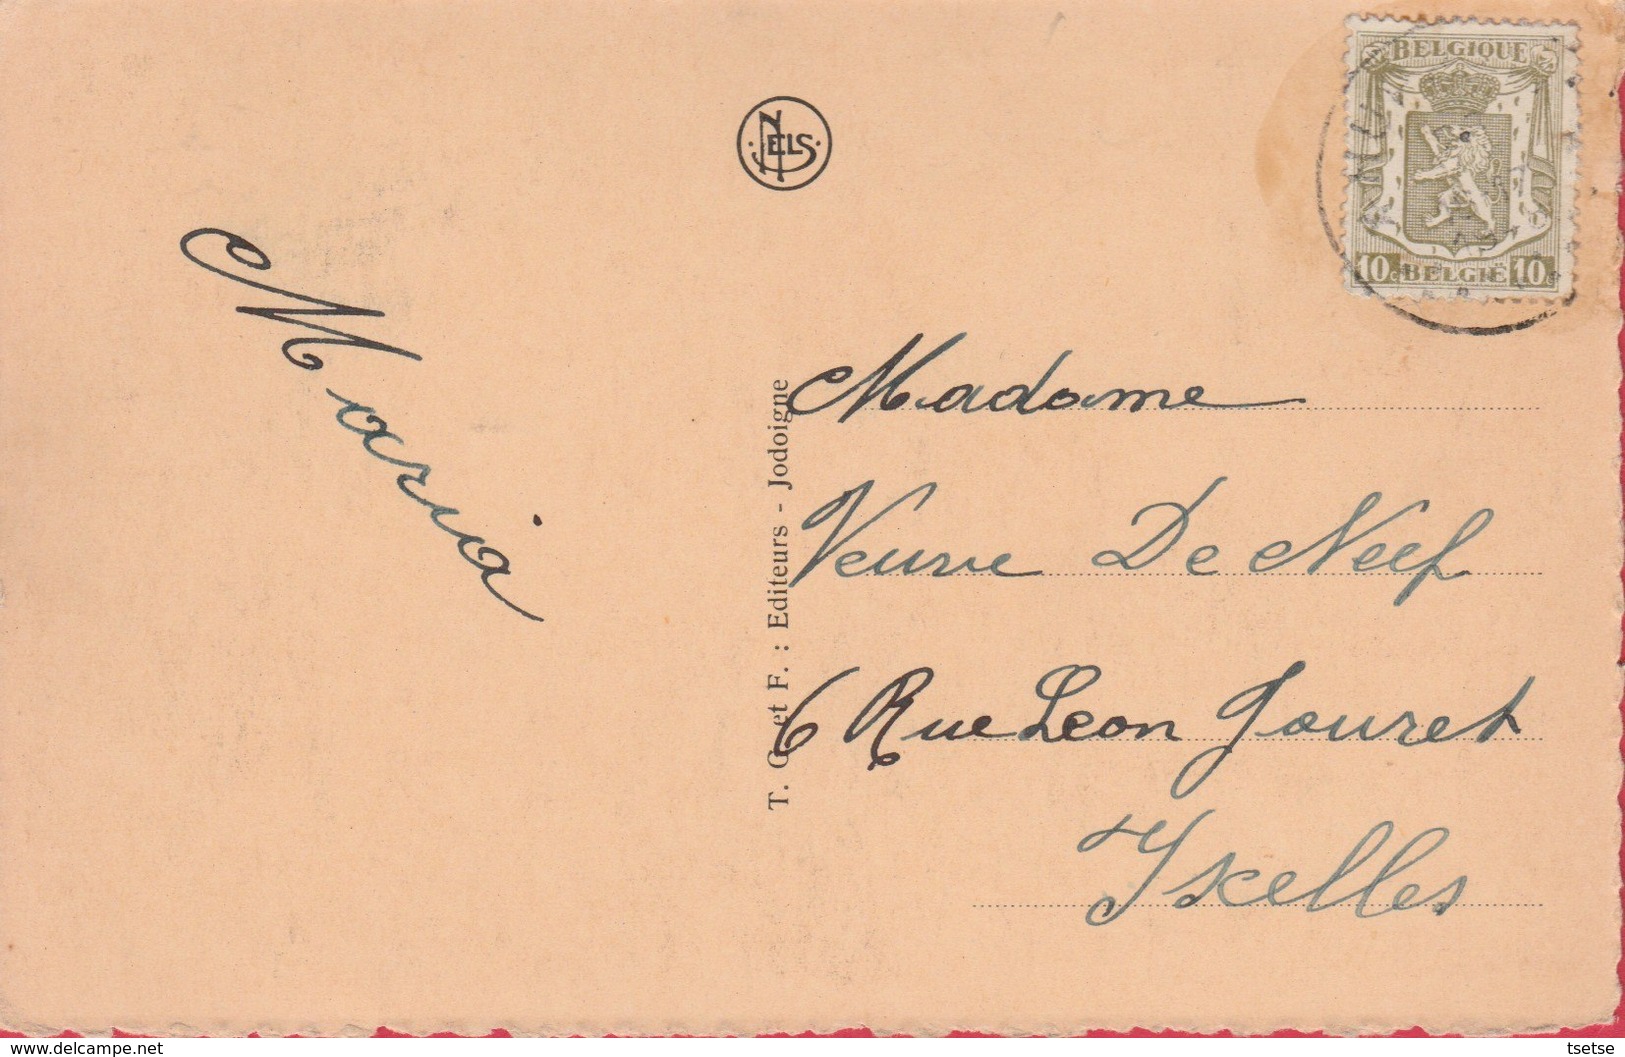 BELGIQUE
10c BELGIË 10c
NELS
Maria
T. G et F. : Editeurs - Jodoigne
Madame
Veuve De Neef
6 Rue Leon Jouret
Ixelles
www.delcampe.net
tsetse